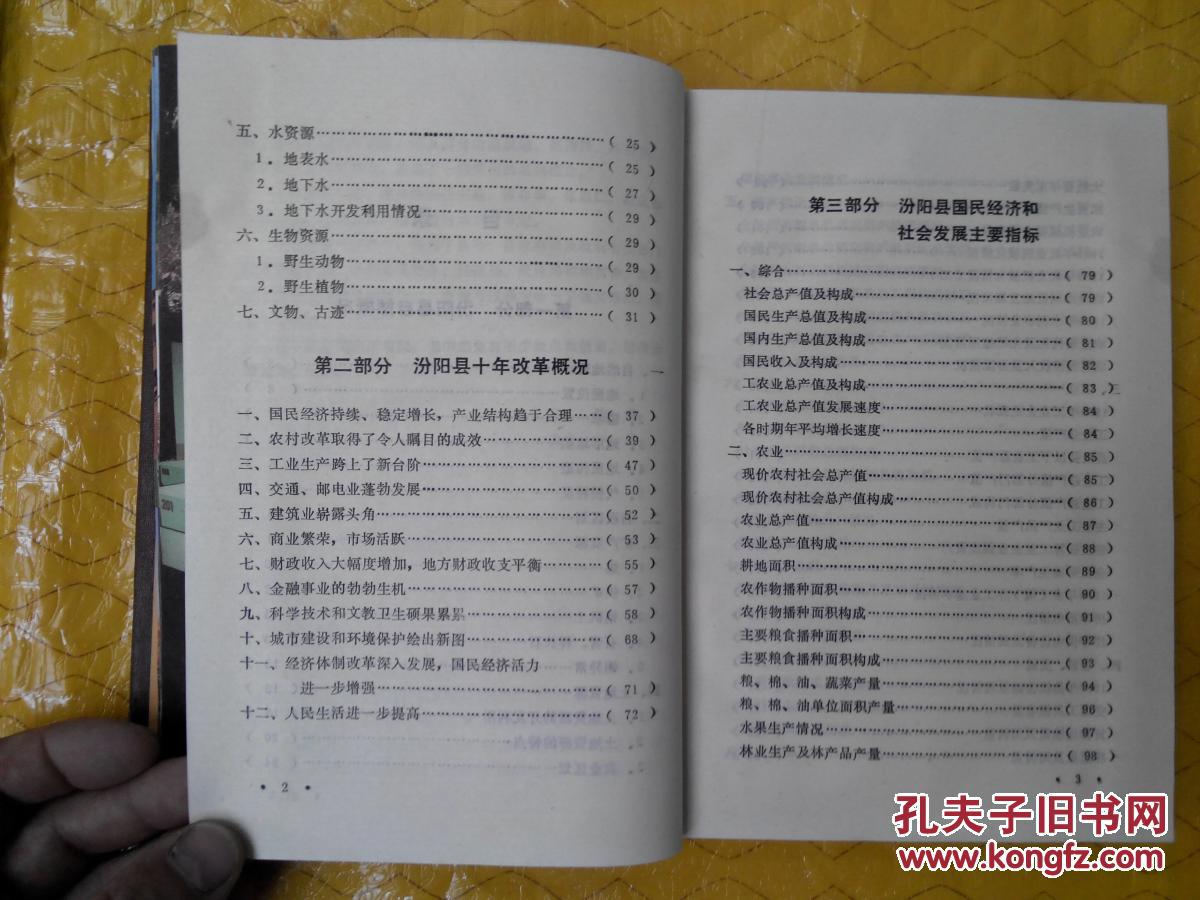 五、水资源……………………………………………( 25 )
1．地表水……………………………………………( 25 )
2．地下水……………………………………………( 27 )
3．地下水开发利用情况………………………………( 29 )
六、生物资源……………………………………………( 29 )
1．野生动物……………………………………………( 29 )
2．野生植物……………………………………………( 30 )
七、文物、古迹…………………………………………( 31 )
第二部分 汾阳县十年改革概况
一、国民经济持续、稳定增长，产业结构趋于合理……( 37 )
二、农村改革取得了令人瞩目的成效…………………( 39 )
三、工业生产跨上了新台阶……………………………( 47 )
四、交通、邮电业蓬勃发展……………………………( 50 )
五、建筑业崭露头角……………………………………( 52 )
六、商业繁荣，市场活跃………………………………( 53 )
七、财政收入大幅度增加，地方财政收支平衡………( 55 )
八、金融事业的勃勃生机………………………………( 57 )
九、科学技术和文教卫生硕果累累……………………( 58 )
十、城市建设和环境保护绘出新图……………………( 68 )
十一、经济体制改革深入发展，国民经济活力
进一步增强……………………………………( 71 )
十二、人民生活进一步提高……………………………( 72 )
• 2 •
第三部分 汾阳县国民经济和
社会发展主要指标
一、综合…………………………………………( 79 )
社会总产值及构成………………………………( 79 )
国民生产总值及构成……………………………( 80 )
国内生产总值及构成……………………………( 81 )
国民收入及构成…………………………………( 82 )
工农业总产值及构成……………………………( 83 )
工农业总产值发展速度…………………………( 84 )
各时期年平均增长速度…………………………( 84 )
二、农业…………………………………………( 85 )
现价农村社会总产值……………………………( 85 )
现价农村社会总产值构成………………………( 86 )
农业总产值………………………………………( 87 )
农业总产值构成…………………………………( 88 )
耕地面积…………………………………………( 89 )
农作物播种面积…………………………………( 90 )
农作物播种面积构成……………………………( 91 )
主要粮食播种面积………………………………( 92 )
主要粮食播种面积构成…………………………( 93 )
粮、棉、油、蔬菜产量…………………………( 94 )
粮、棉、油单位面积产量………………………( 96 )
水果生产情况……………………………………( 97 )
林业生产及林产品产量…………………………( 98 )
• 3 •
孔夫子旧书网
www.kongfz.com